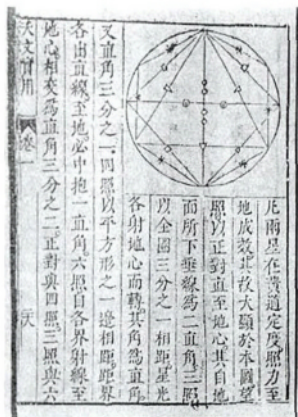 凡兩星在黃道定度照力至
地成效其故大顯於本圖望
照以正對直至地心其自地
面所下垂線爲二直角三照
以全圈三分之一相距星光
各射地心而轉其角爲直角
又直角三分之一四照以平方形之一邊相距距界
各由直線至地心中抱一直角六照自各界射線至
地心相交爲直角三分之二正對與四照三照與六
天文實用
卷一